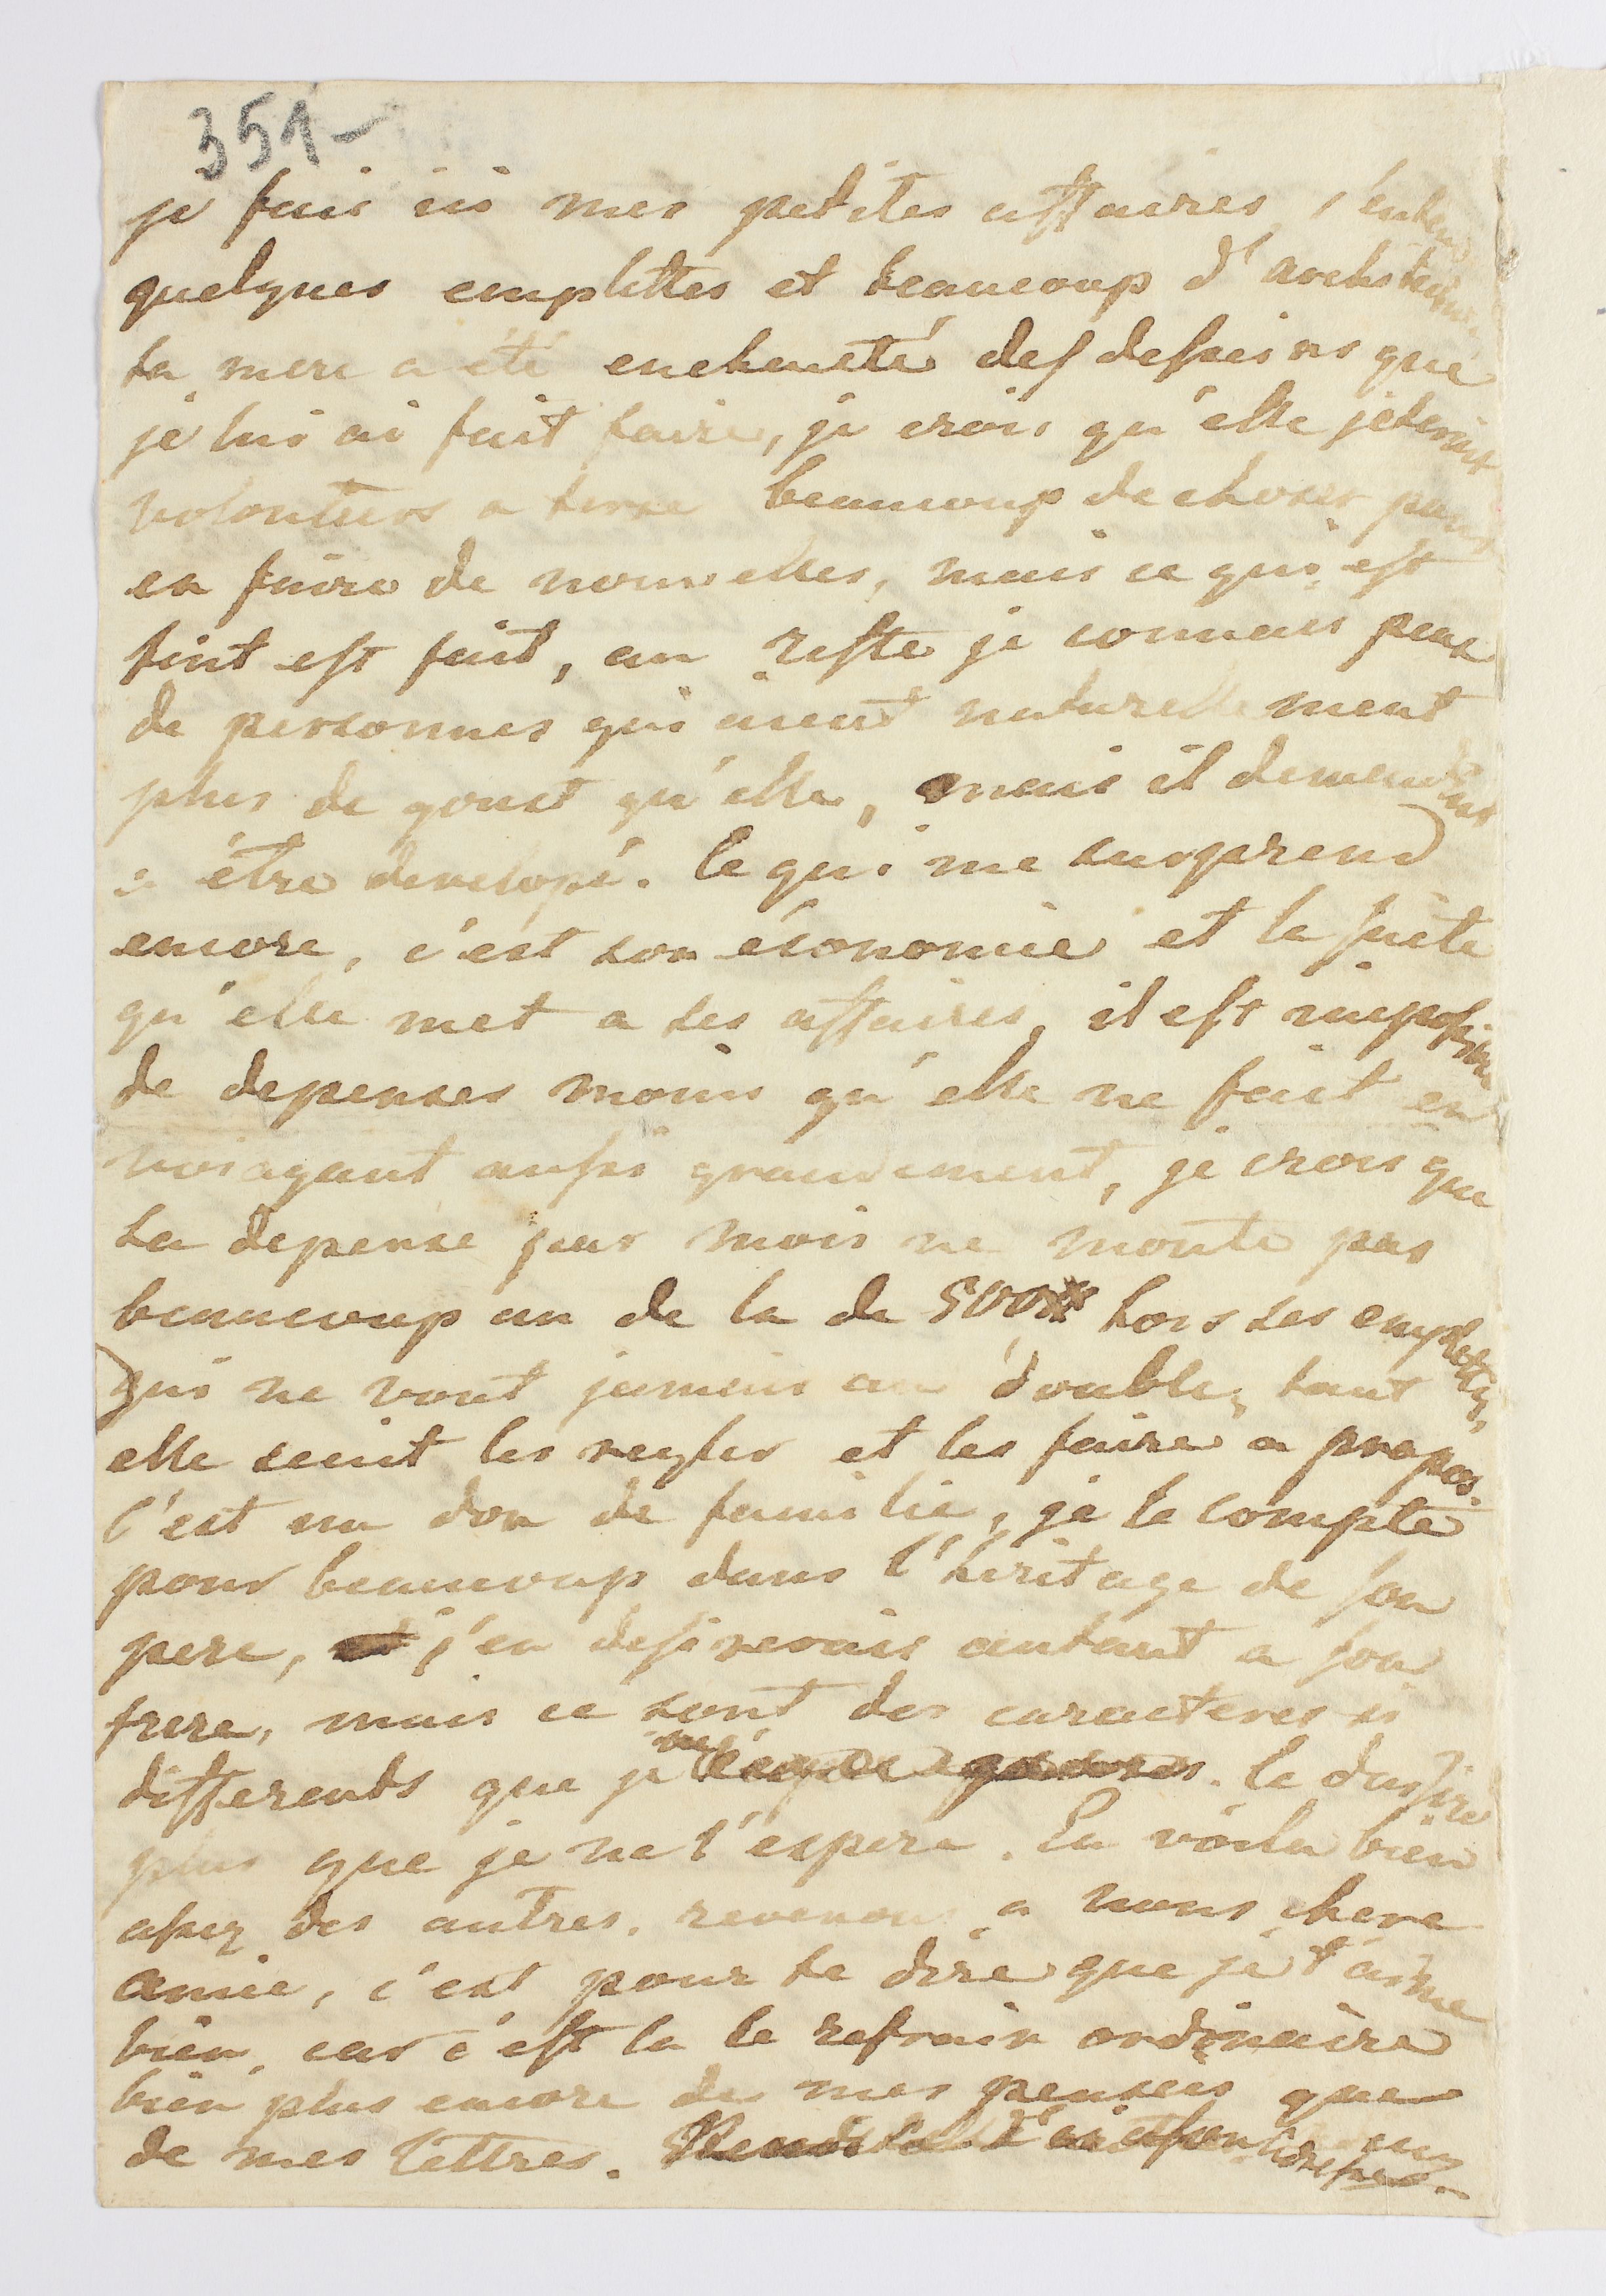 351-
je fais ici mes petites affaires, s'entend
quelques emplettes et beaucoup d'architecture.
ta mere a été enchenté des desseins que
je lui ai fait faire, je crois qu'elle jeterait
volontiers a terre beaucoup de choses pour
en faire de nouvelles, mais ce qui est
fint est fait, au reste je connais peu
de personnes qui aient naturellement
plus de goust qu'elle, mais il demendait
a être developé. Ce qui me surprend
encore, c'est son économie et la suite
qu'elle met a ses affaires, il est impossible
de depenser moins qu'elle ne fait en
voiagant aussi grandement, je crois que
sa depense par mois ne monte pas
beaucoup au de la de 500 hors ses emplettes,
qui ne vont jamais au double, tant
elle scait les regler et les faire a propos.
C'est un don de famille, je le compte
pour beaucoup dans l'héritage de son
pere, j'en desirerais autant a son
frere, mais ce sont des caracteres si
differents que je le desire
plus que je ne l'espere. En voila bien
assez des autres, revenons a nous chere
amie, c'est pour te dire que je t'aime
bien, car c'est la le refrain ordinaire
bien plus encore de mes pensees que
de mes lettres.